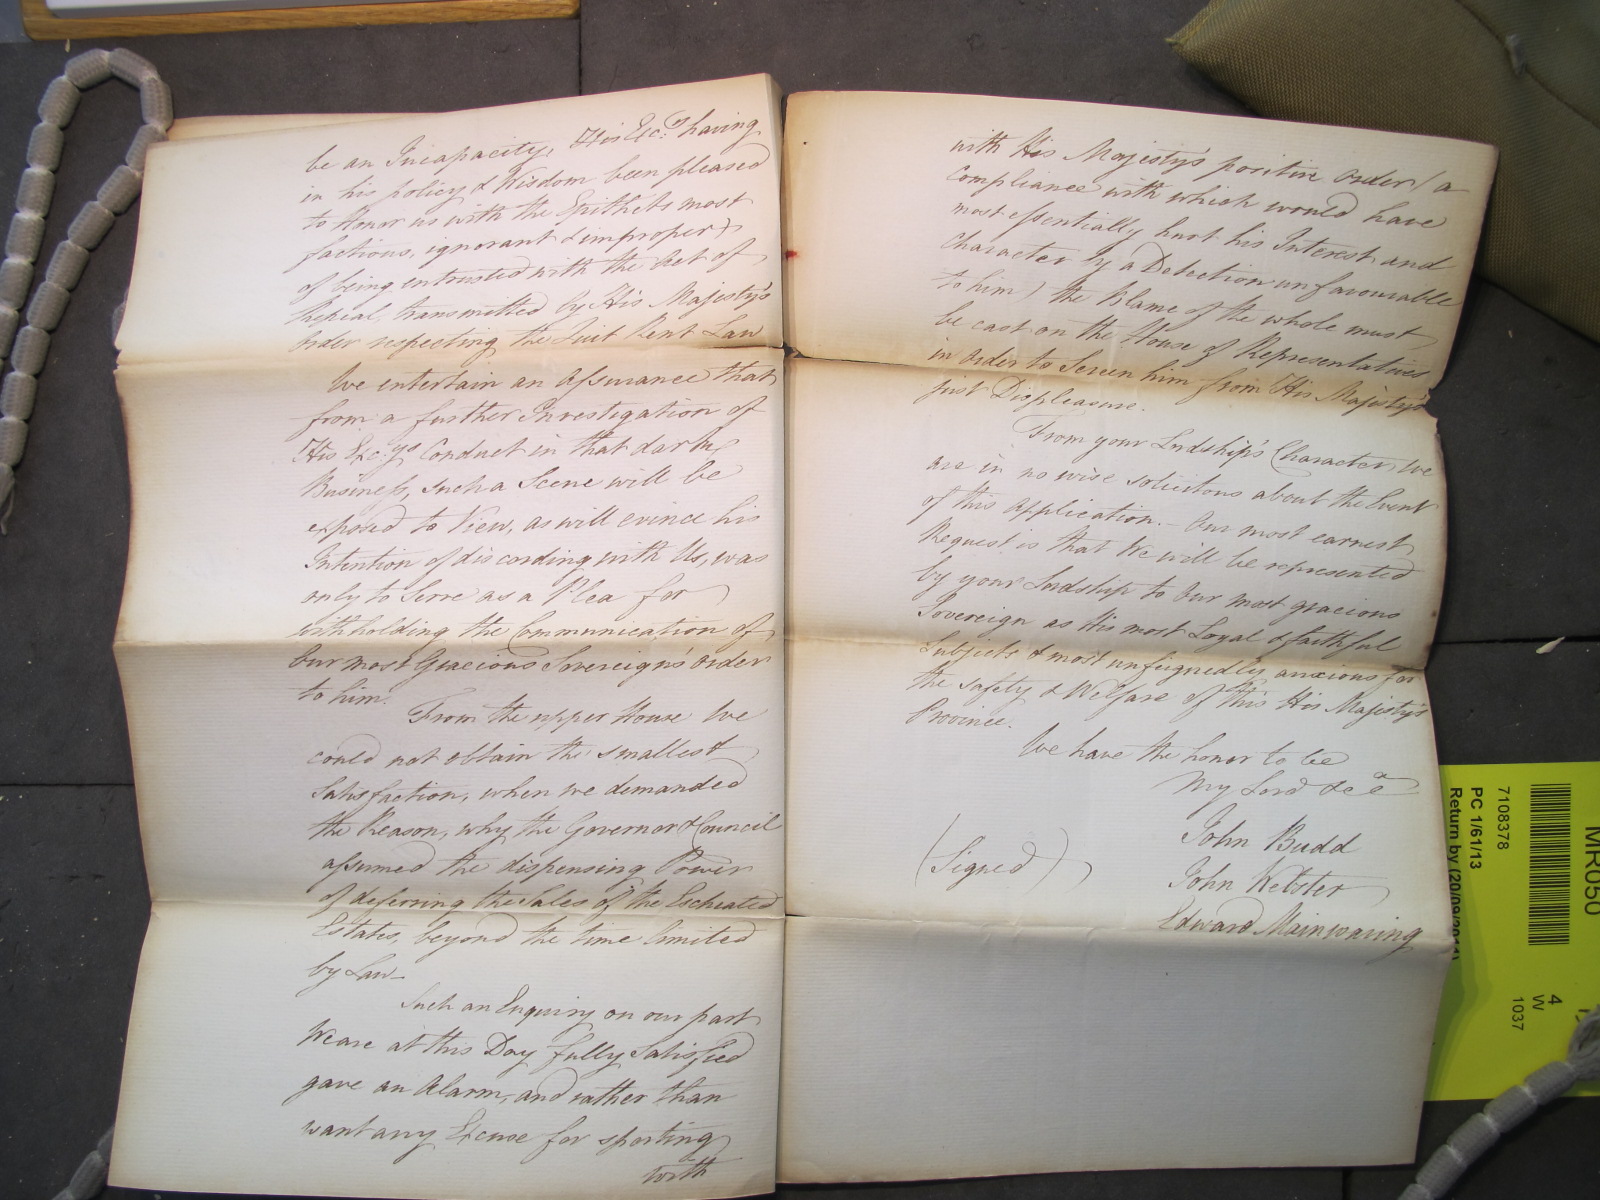 be an Incapacity, His Exc:y having
in his policy & Wisdom been pleased
to Honor us with the Epithets most
factious, ignorant & improper)
of being entrusted with the Act of
Repeal, transmitted by His Majesty's
Order respecting the Quit Rent Law
We entertain an Assurance that
from a further Investigation of
His Exc:ys Conduct in that dark
Business, such a Scene will be
exposed to View, as will evince his
Intention of discording with Us, was
only to Serve as a Plea for
withholding the Communication of
Our most Gracious Sovereign's order
to him.
From the upper House We
could not obtain the smallest
Satisfaction, when we demanded
the Reason, why the Governor & Council
assumed the dispensing Power
of deferring the Sales of the Escheated
Estates, beyond the time limited
by Law
Such an Enquiry on our part
We are at this Day fully Satisfied
gave an Alarm, and rather than
want any Excuse for sporting
with
with His Majesty's positive Order (a
Compliance with which would have
most essentially hurt his Interest and
Character by a Detection unfavourable
to him) the Blame of the whole must
be cast on the House of Representatives
in order to Screen him from His Majesty's
just Displeasure.
From your Lordship's Character, We
are in no wise solicitous about the Event
of this Application. - Our most earnest
Request is that We will be represented
by your Lordship to Our most gracious
Sovereign as His most Loyal & faithful
Subjects & most unfeignedly anxious for
the safety & Welfare of this His Majesty's
Province.
We have the honor to be
My Lord &c a
(Signed)
John Budd
John Webster
Edward Mainwaring
MR050
7108378
PC 1/61/13
Return by (20/09/2011)
4
W
1037